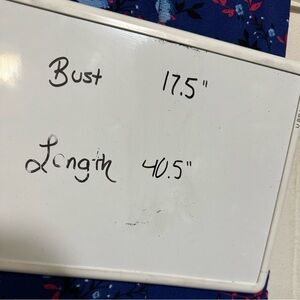 Bust 17.5"
Length 40.5"